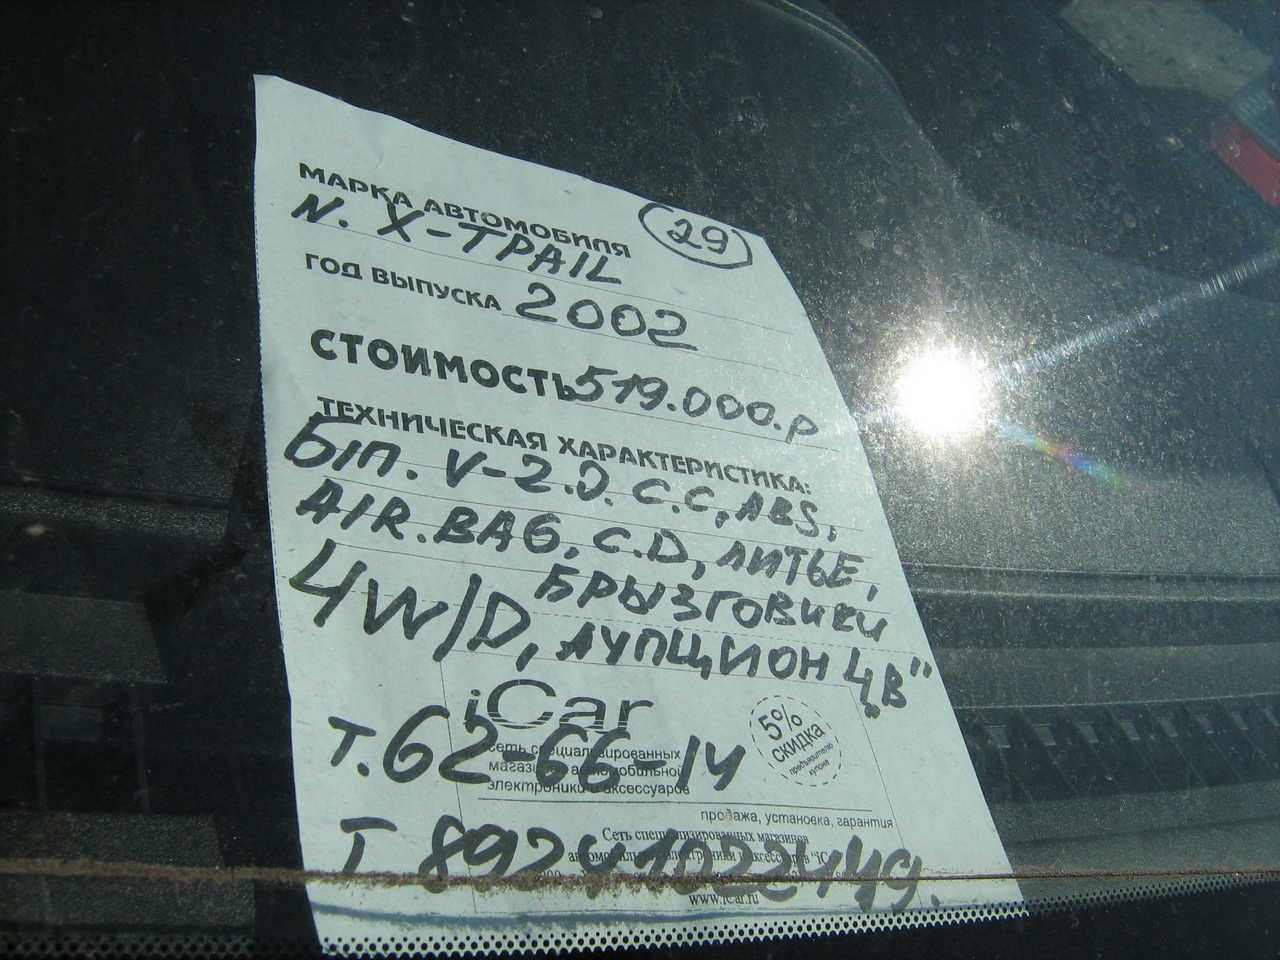 МАРКА АВТОМОБИЛЯ
29
N. X-ТРАIL
ГОД ВЫПУСКА 2002
СТОИМОСТЬ 519.000.р
ТЕХНИЧЕСКАЯ ХАРАКТЕРИСТИКА:
Б/П. V-2.0. С.С, ABS,
AIR.BAG, C.D, ЛИТЬЕ,
БРЫЗГОВИКИ
4W/D, АУПЦИОН „4В"
iCar
5% СКИДКА
предъявителю
купона
т. 62-66-14
сеть специализированных
магазинов автомобильной
электроники и аксессуаров
продажа, установка, гарантия
Сеть специализированных магазинов
автомобильной электроники и аксессуаров "iCar"
Т 89241022449.
www.icar.ru